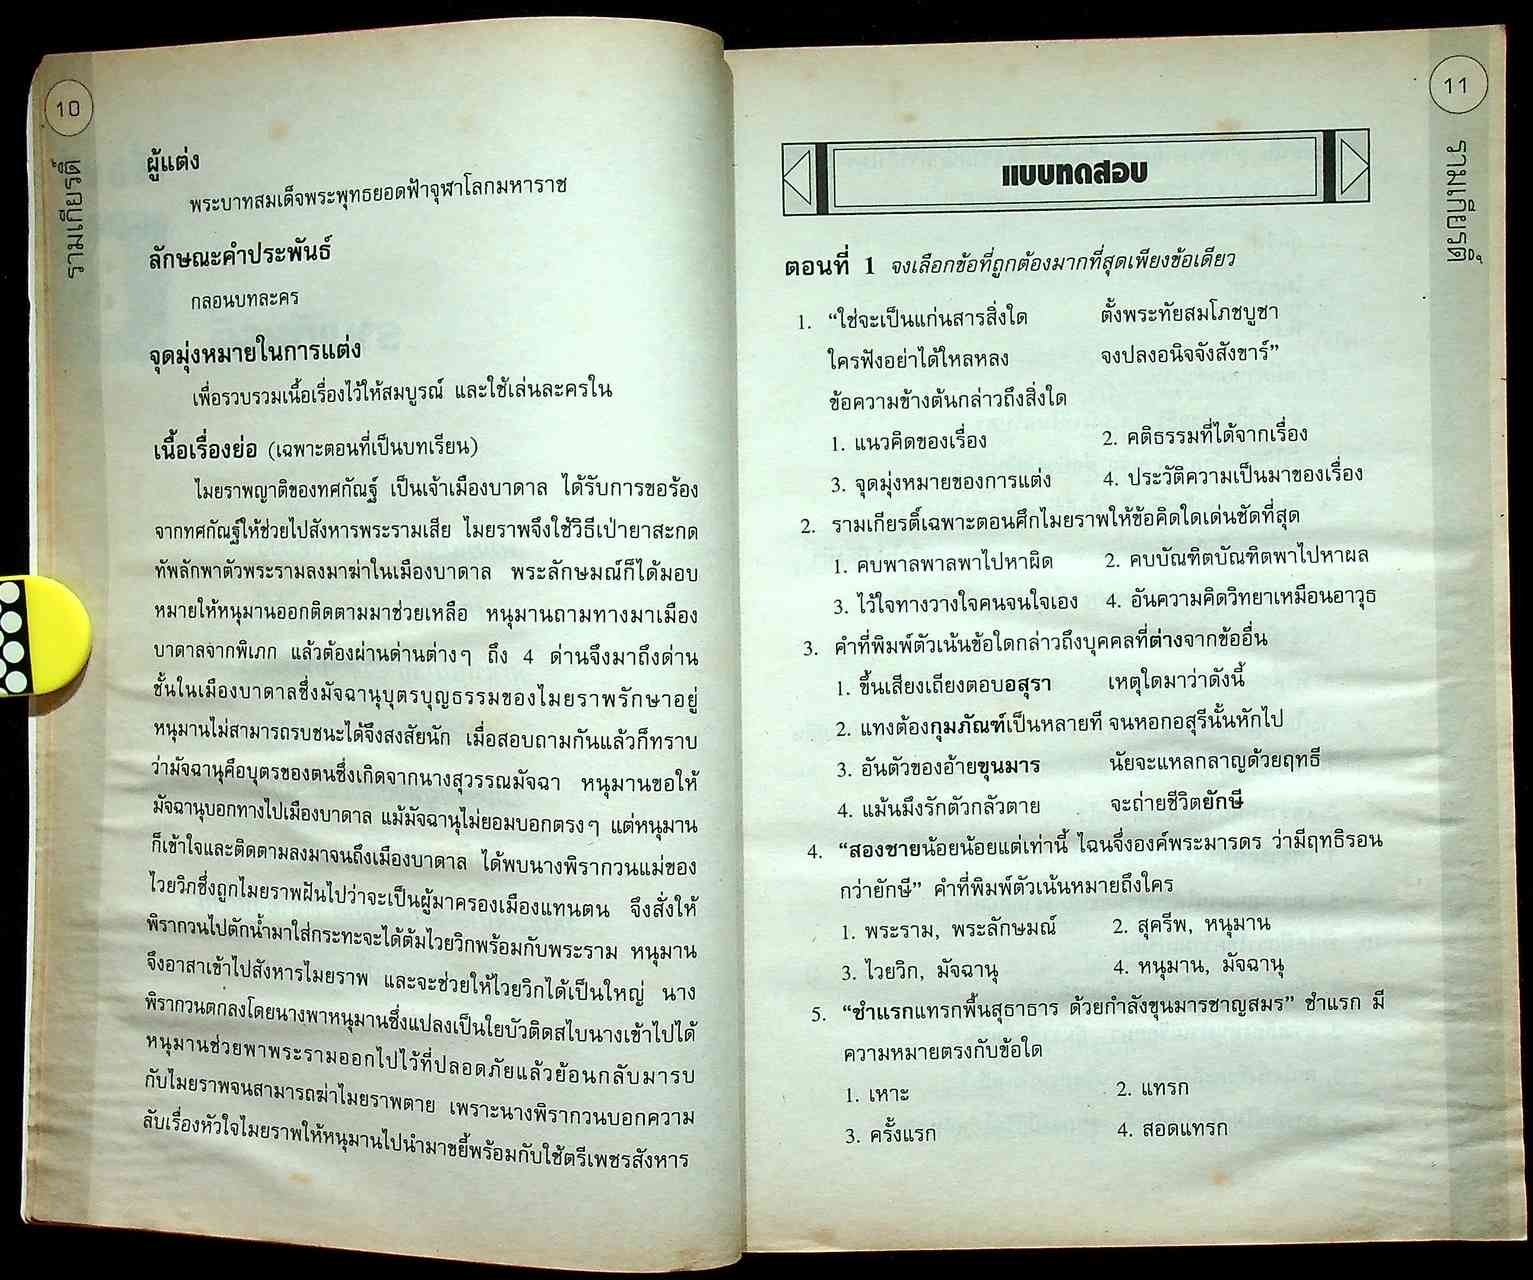 10
รามเกียรติ์
ผู้แต่ง
พระบาทสมเด็จพระพุทธยอดฟ้าจุฬาโลกมหาราช
ลักษณะคำประพันธ์
กลอนบทละคร
จุดมุ่งหมายในการแต่ง
เพื่อรวบรวมเนื้อเรื่องไว้ให้สมบูรณ์ และใช้เล่นละครใน
เนื้อเรื่องย่อ (เฉพาะตอนที่เป็นบทเรียน)
ไมยราพญาติของทศกัณฐ์ เป็นเจ้าเมืองบาดาล ได้รับการขอร้อง
จากทศกัณฐ์ให้ช่วยไปสังหารพระรามเสีย ไมยราพจึงใช้วิธีเป่ายาสะกด
ทัพลักพาตัวพระรามลงมาฆ่าในเมืองบาดาล พระลักษมณ์ก็ได้มอบ
หมายให้หนุมานออกติดตามมาช่วยเหลือ หนุมานถามทางมาเมือง
บาดาลจากพิเภก แล้วต้องผ่านด่านต่างๆ ถึง 4 ด่านจึงมาถึงด่าน
ชั้นในเมืองบาดาลซึ่งมัจฉานุบุตรบุญธรรมของไมยราพรักษาอยู่
หนุมานไม่สามารถรบชนะได้จึงสงสัยนัก เมื่อสอบถามกันแล้วก็ทราบ
ว่ามัจฉานุคือบุตรของตนซึ่งเกิดจากนางสุวรรณมัจฉา หนุมานขอให้
มัจฉานุบอกทางไปเมืองบาดาล แม้มัจฉานุไม่ยอมบอกตรงๆ แต่หนุมาน
ก็เข้าใจและติดตามลงมาจนถึงเมืองบาดาล ได้พบนางพิรากวนแม่ของ
ไวยวิกซึ่งถูกไมยราพฝันไปว่าจะเป็นผู้มาครองเมืองแทนตน จึงสั่งให้
พิรากวนไปตักน้ำมาใส่กระทะจะได้ต้มไวยวิกพร้อมกับพระราม หนุมาน
จึงอาสาเข้าไปสังหารไมยราพ และจะช่วยให้ไวยวิกได้เป็นใหญ่ นาง
พิรากวนตกลงโดยนางพาหนุมานซึ่งแปลงเป็นใยบัวติดสไบนางเข้าไปได้
หนุมานช่วยพาพระรามออกไปไว้ที่ปลอดภัยแล้วย้อนกลับมารบ
กับไมยราพจนสามารถฆ่าไมยราพตาย เพราะนางพิรากวนบอกความ
ลับเรื่องหัวใจไมยราพให้หนุมานไปนำมาขยี้พร้อมกับใช้ตรีเพชรสังหาร
11
รามเกียรติ์
แบบทดสอบ
ตอนที่ 1 จงเลือกข้อที่ถูกต้องมากที่สุดเพียงข้อเดียว
1. “ใช่จะเป็นแก่นสารสิ่งใด ตั้งพระทัยสมโภชบูชา
ใครฟังอย่าได้ใหลหลง จงปลงอนิจจังสังขาร์”
ข้อความข้างต้นกล่าวถึงสิ่งใด
1. แนวคิดของเรื่อง 2. คติธรรมที่ได้จากเรื่อง
3. จุดมุ่งหมายของการแต่ง 4. ประวัติความเป็นมาของเรื่อง
2. รามเกียรติ์เฉพาะตอนศึกไมยราพให้ข้อคิดใดเด่นชัดที่สุด
1. คบพาลพาลพาไปหาผิด 2. คบบัณฑิตบัณฑิตพาไปหาผล
3. ไว้ใจทางวางใจคนจนใจเอง 4. อันความคิดวิทยาเหมือนอาวุธ
3. คำที่พิมพ์ตัวเน้นข้อใดกล่าวถึงบุคคลที่ต่างจากข้ออื่น
1. ขึ้นเสียงเถียงตอบอสุรา เหตุใดมาว่าดังนี้
2. แทงต้องกุมภัณฑ์เป็นหลายที จนหอกอสุรีนั้นหักไป
3. อันตัวของอ้ายขุนมาร นัยจะแหลกลาญด้วยฤทธี
4. แม้นมึงรักตัวกลัวตาย จะถ่ายชีวิตยักษี
4. “สองชายน้อยน้อยแต่เท่านี้ ไฉนจึ่งองค์พระมารดร ว่ามีฤทธิรอน
กว่ายักษี” คำที่พิมพ์ตัวเน้นหมายถึงใคร
1. พระราม, พระลักษมณ์ 2. สุครีพ, หนุมาน
3. ไวยวิก, มัจฉานุ 4. หนุมาน, มัจฉานุ
5. “ชำแรกแทรกพื้นสุธาธาร ด้วยกำลังขุนมารชาญสมร” ชำแรก มี
ความหมายตรงกับข้อใด
1. เหาะ 2. แทรก
3. ครั้งแรก 4. สอดแทรก